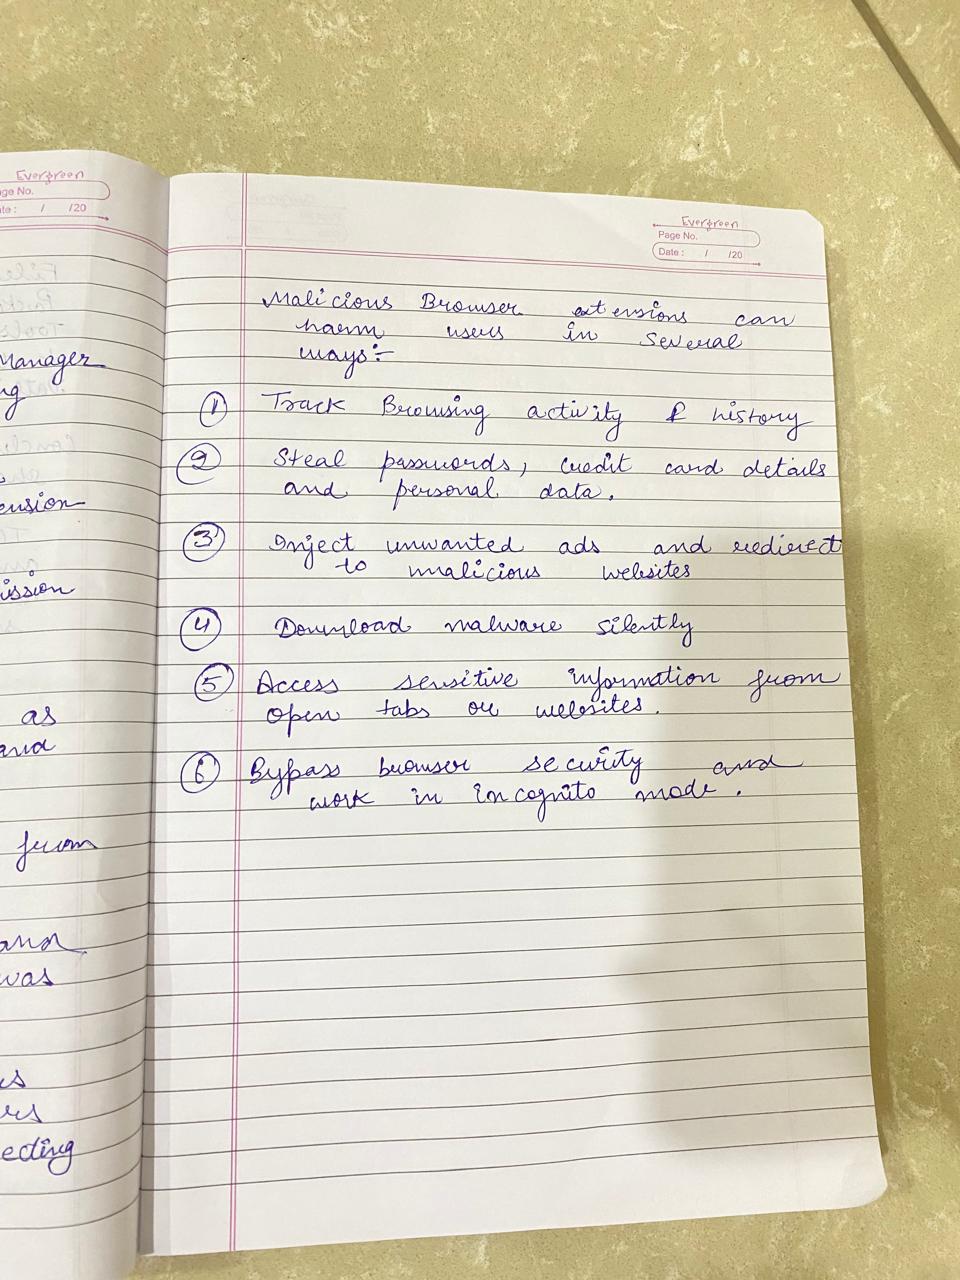 Evergreen
ge No.
ate : / /20
Manager
ng
ension
ission
as
and
from
and
was
us
ers
ecting
Evergreen
Page No.
Date : / /20
Malicious Browser extensions can
harm users in several
ways:-
① Track Browsing activity & history
② Steal passwords, credit card details
and personal data.
③ Inject unwanted ads and redirect
to malicious websites
④ Download malware silently
⑤ Access sensitive information from
open tabs or websites.
⑥ Bypass browser security and
work in incognito mode.